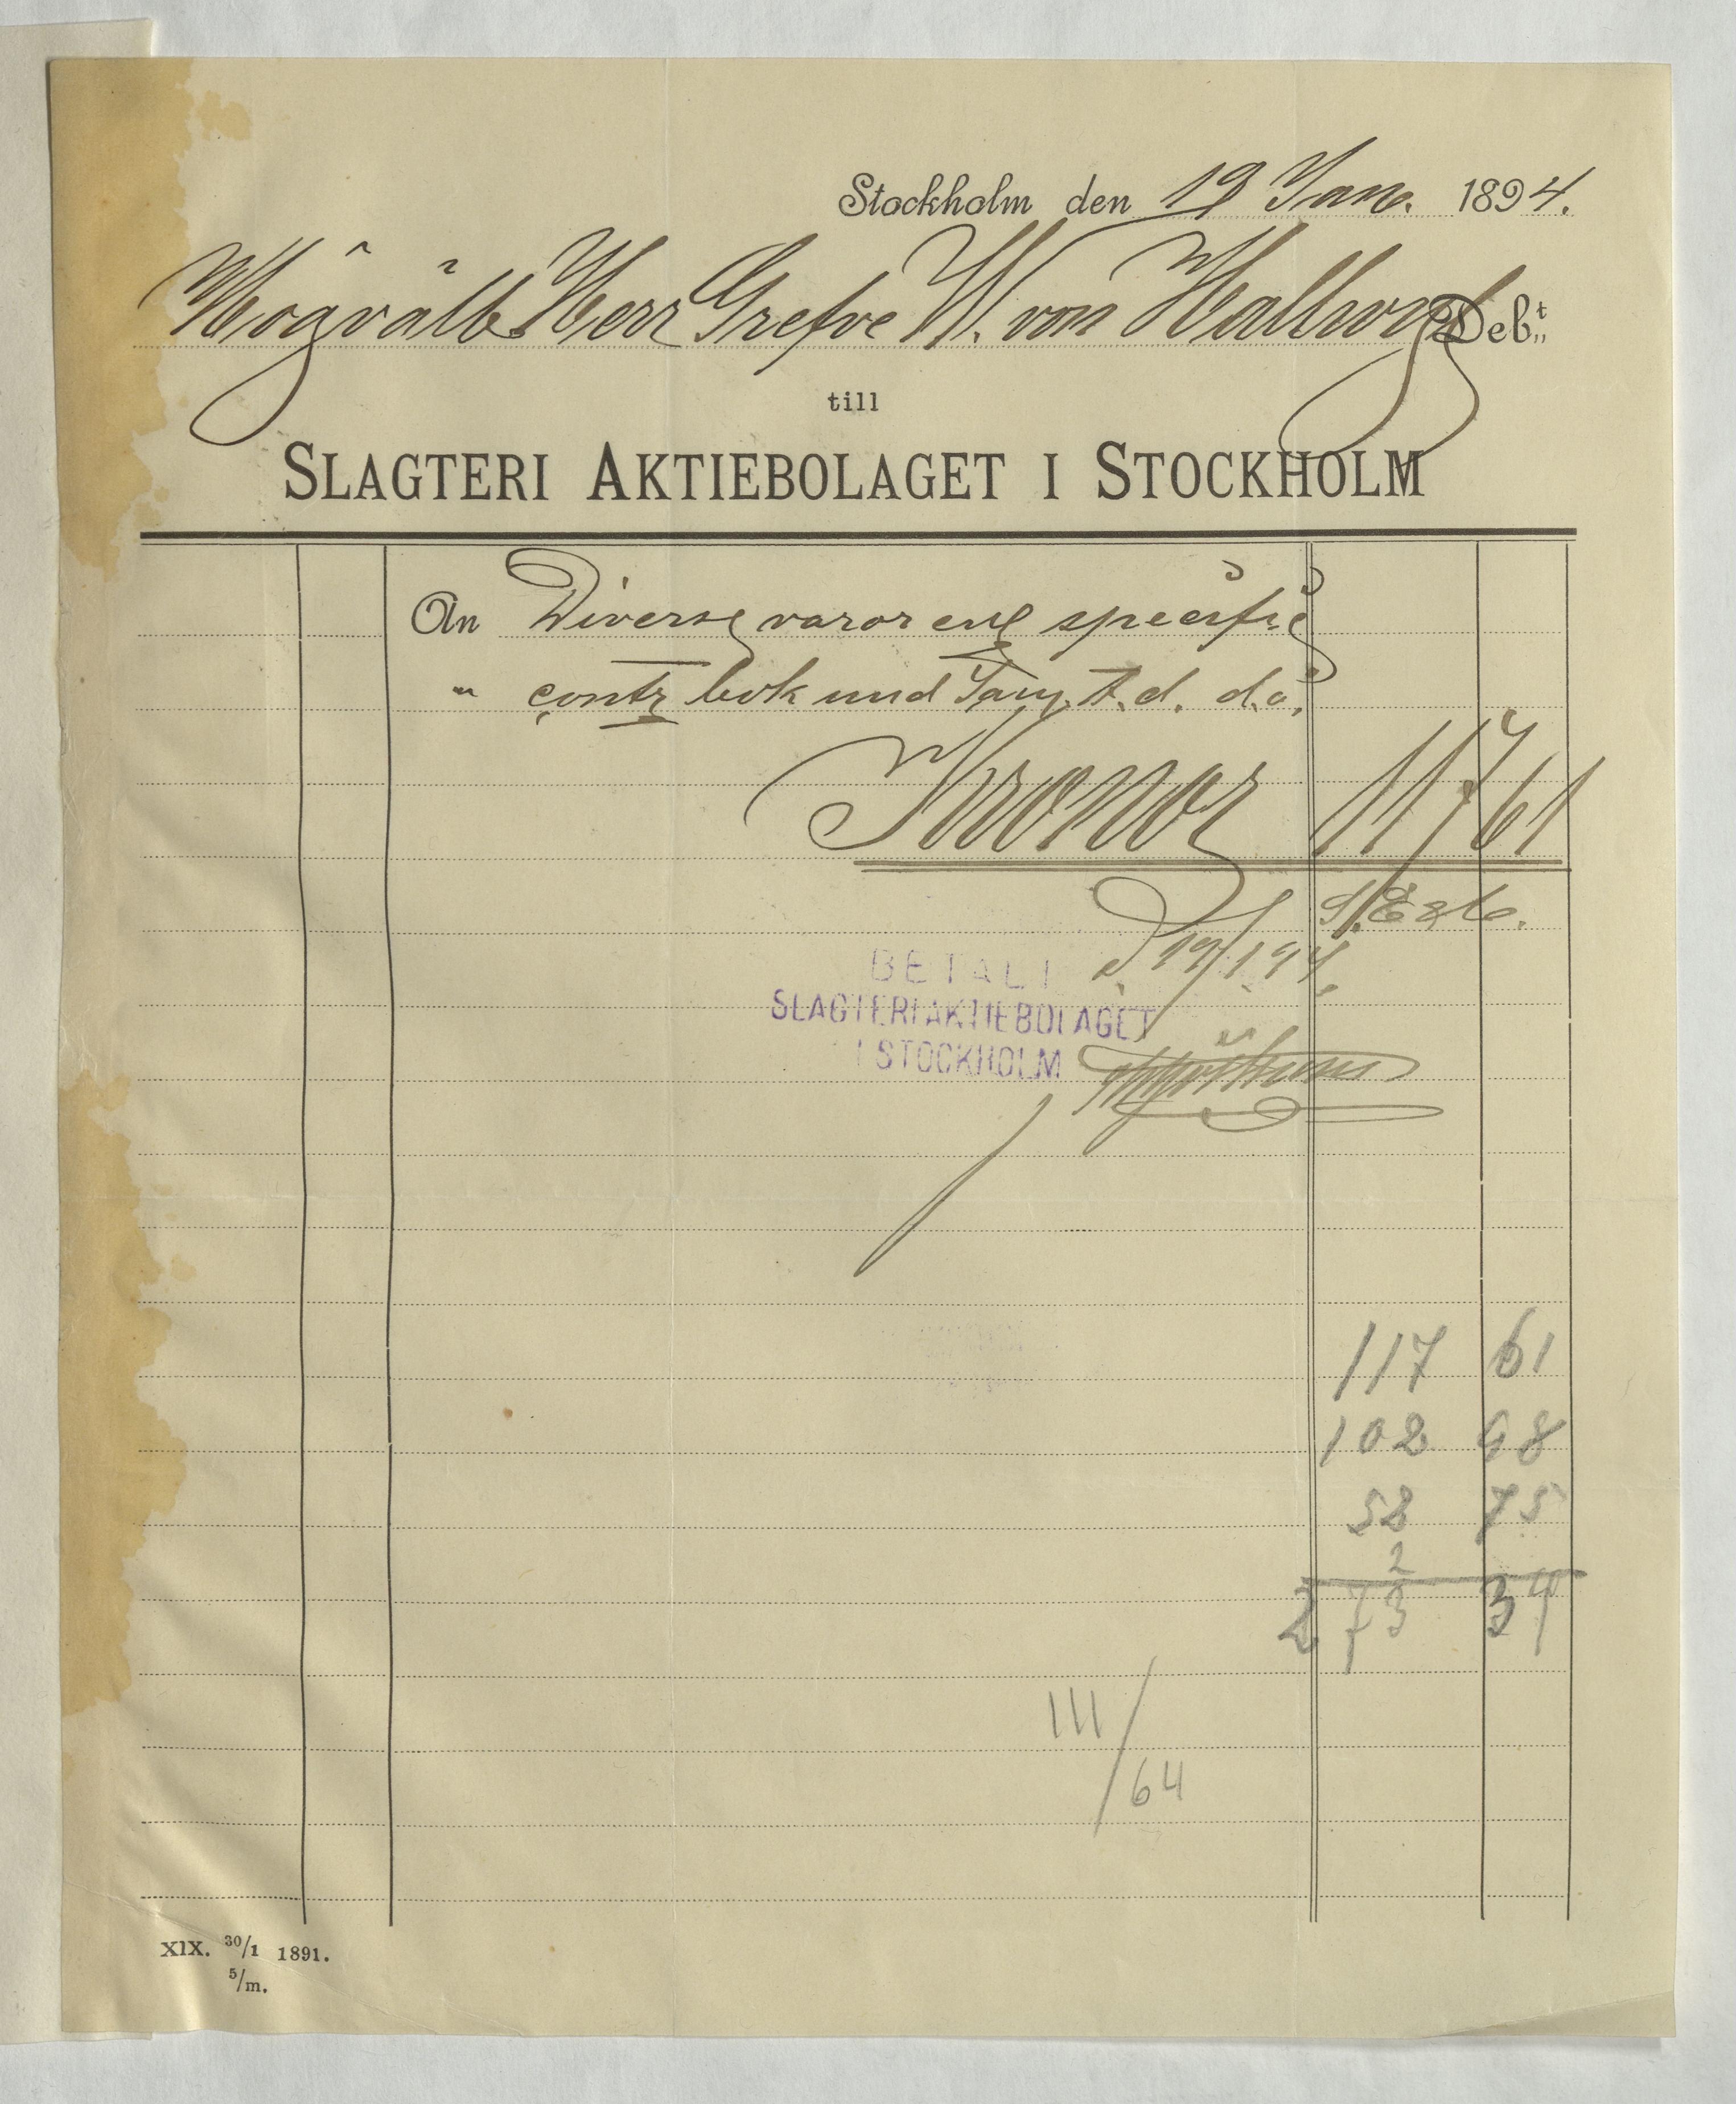 Stockholm den 19 Jan. 1894.
Högvälb. Herr Grefve W. von Hallwyl Deb:t
till
SLAGTERI AKTIEBOLAGET I STOCKHOLM
An Diverse varor enl specific
" contr bok und t. d. d.o.
Kronor 117 61
S. E. & O.
d. 19/1 94.
BETALT
SLAGTERIAKTIEBOLAGET
I STOCKHOLM
117 61
102 98
52 75
2
273 34
111/64
XIX. 30/1 1891.
5/m.